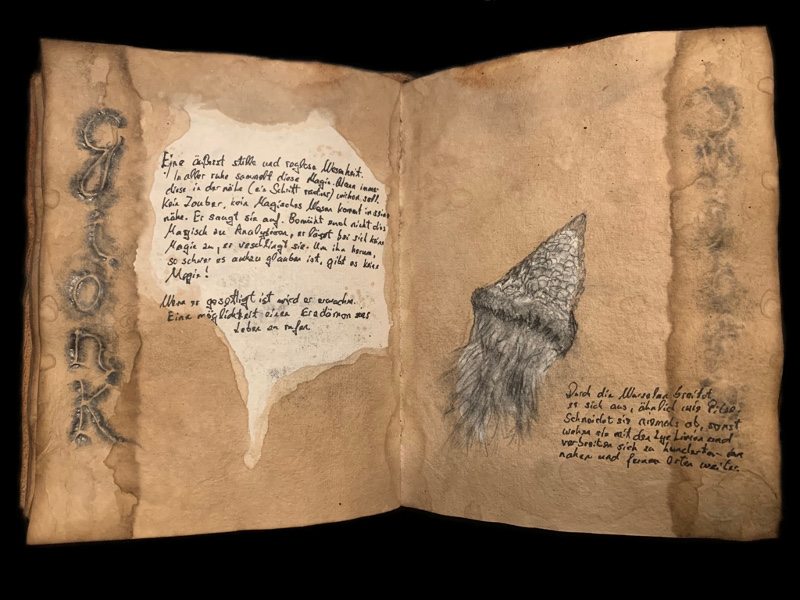 Gaionk
Eine äußerst stille und reglose Wesenheit.
In aller ruhe sammelt diese Magie. Wann immer
diese in der nähe (ein Schritt radius) wirken soll.
Kein Zauber, kein Magisches Wesen kommt in seine
nähe. Er saugt sie auf. Bemüht euch nicht dies
Magisch zu Analysieren, er lässt bei sich keine
Magie zu, er verschlingt sie. Um ihn herum,
so schwer es auch zu glauben ist, gibt es keine
Magie!
Wenn er gesättigt ist wird er erwachen.
Eine möglichkeit einen Erzdämon ins
Leben zu rufen
Durch die Wurzeln breitet
er sich aus, ähnlich wie Pilze.
Schneidet sie niemals ab, sonst
wehen sie mit den Linien und
verbreiten sich zu hunderten an
nahen und fernen Orten weiter.